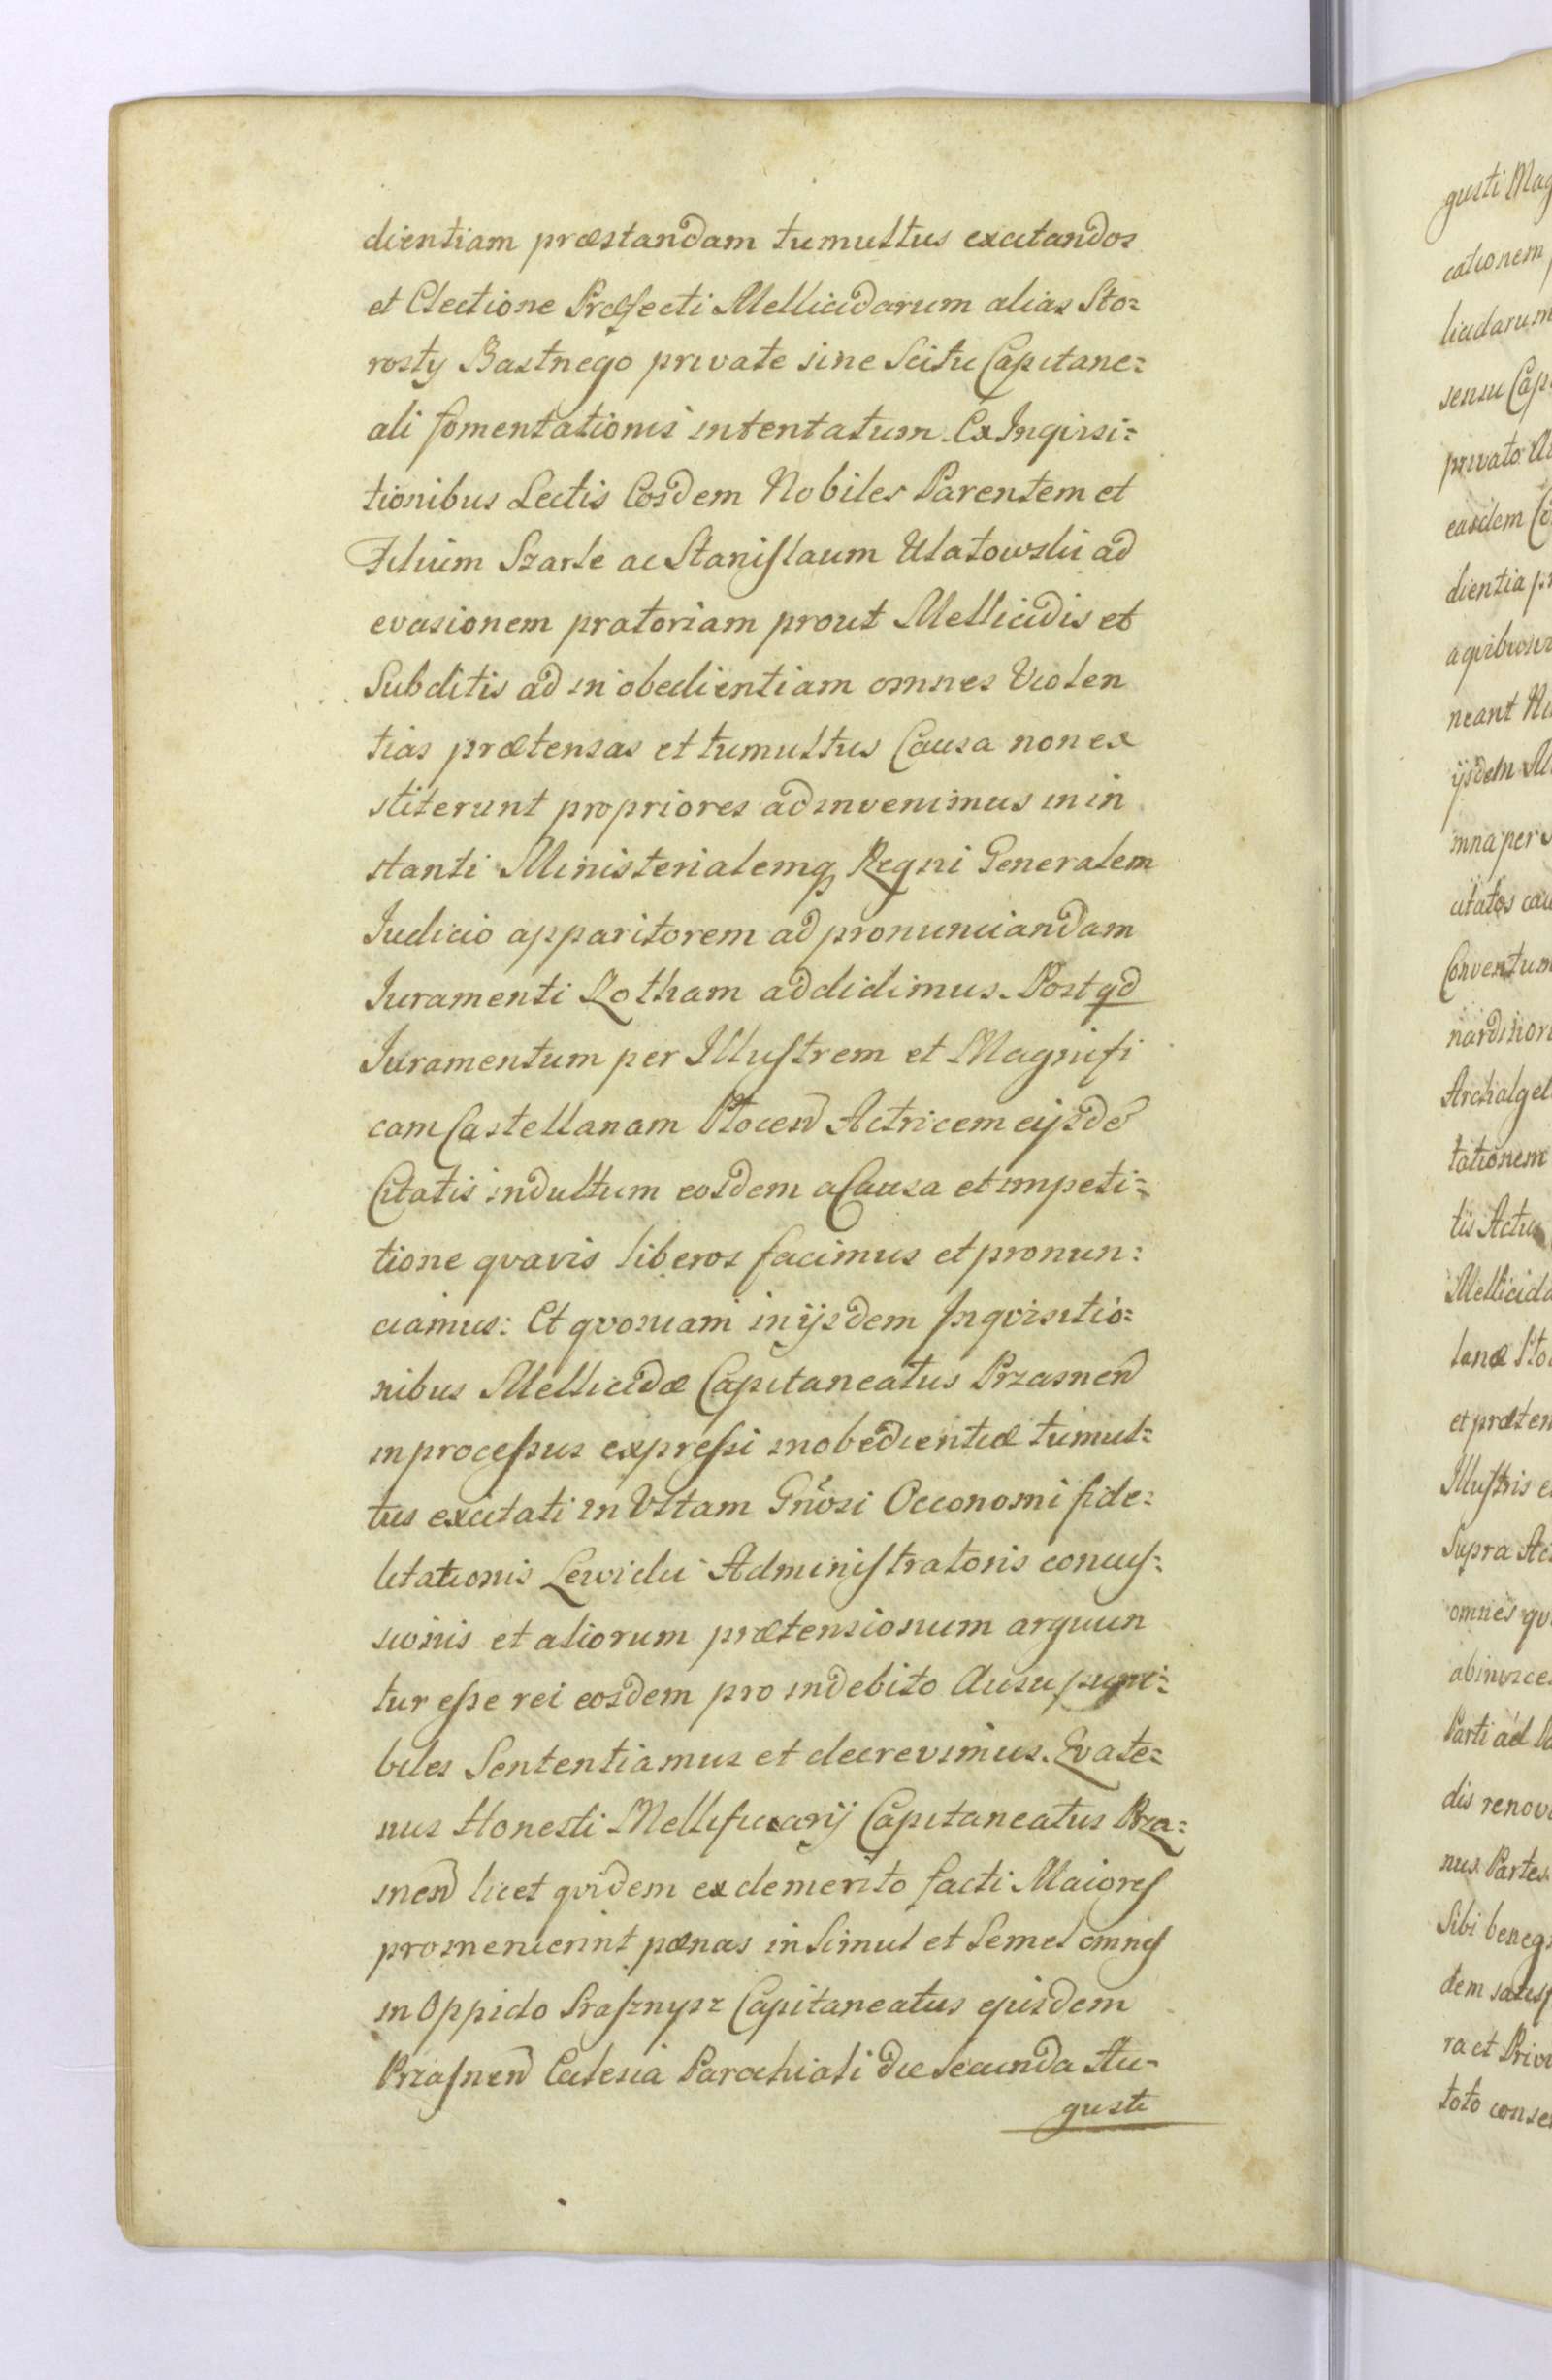 dientiam præstandam tumultus excitandos
et Electione Præfecti Mellicidarum alias Sto=
rosty Bartnego private sine Scitu Capitane=
ali fomentationis intentatum. Ex Inqvisi=
tionibus Lectis Eosdem Nobiles Parentem et
Filium Szarle ac Stanislaum Ulatowski ad
evasionem pratoriam prout Mellicidis et
Subditis ad in obedientiam omnes Violen
tias prætensas et tumultus Causa non ex
stiterunt propriores adinvenimus in in
stanti Ministerialemq Regni Generalem
Judicio apparitorem ad pronunciandam
Juramenti Rotham addidimus. Post qd
Juramentum per Illustrem et Magnifi
cam Castellanam Plocen Actricem eijsde
Citatis indultum eosdem a Causa et impeti=
tione qvavis liberos facimus et pronun:
ciamus: Et qvoniam in ijsdem Inqvisitio=
nibus Mellicidæ Capitaneatus Przasnen
in processus expressi inobedientiæ tumul=
tus excitati in Vitam Gnosi Oeconomi fide=
litationis Lewicki Administratoris concus=
sionis et aliorum prætensionum arguun
tur esse rei eosdem pro indebito Ausu puni=
biles Sententiamus et decrevimus. Qvate=
nus Honesti Mellificarij Capitaneatus Prza=
snen licet qvidem ex demerito facti Maiores
promeruerint pænas in Simul et Semel omnes
in Oppido Prasznysz Capitaneatus ejusdem
Przasnen Eclesia Parochiali die secunda Au=
gusti
gusti Mag
cationem
licidarum
sensu Cap
privato
easdem
dientia
neant
ijsdem
mna per
citatos
Conventum
tationem
tis Actu
Mellicid
lanæ
et præten
Illustris e
Supra Ac
omnes qv
Parti ad
dis renov
nus Partes
Sibi
dem
ra et Privi
toto conse